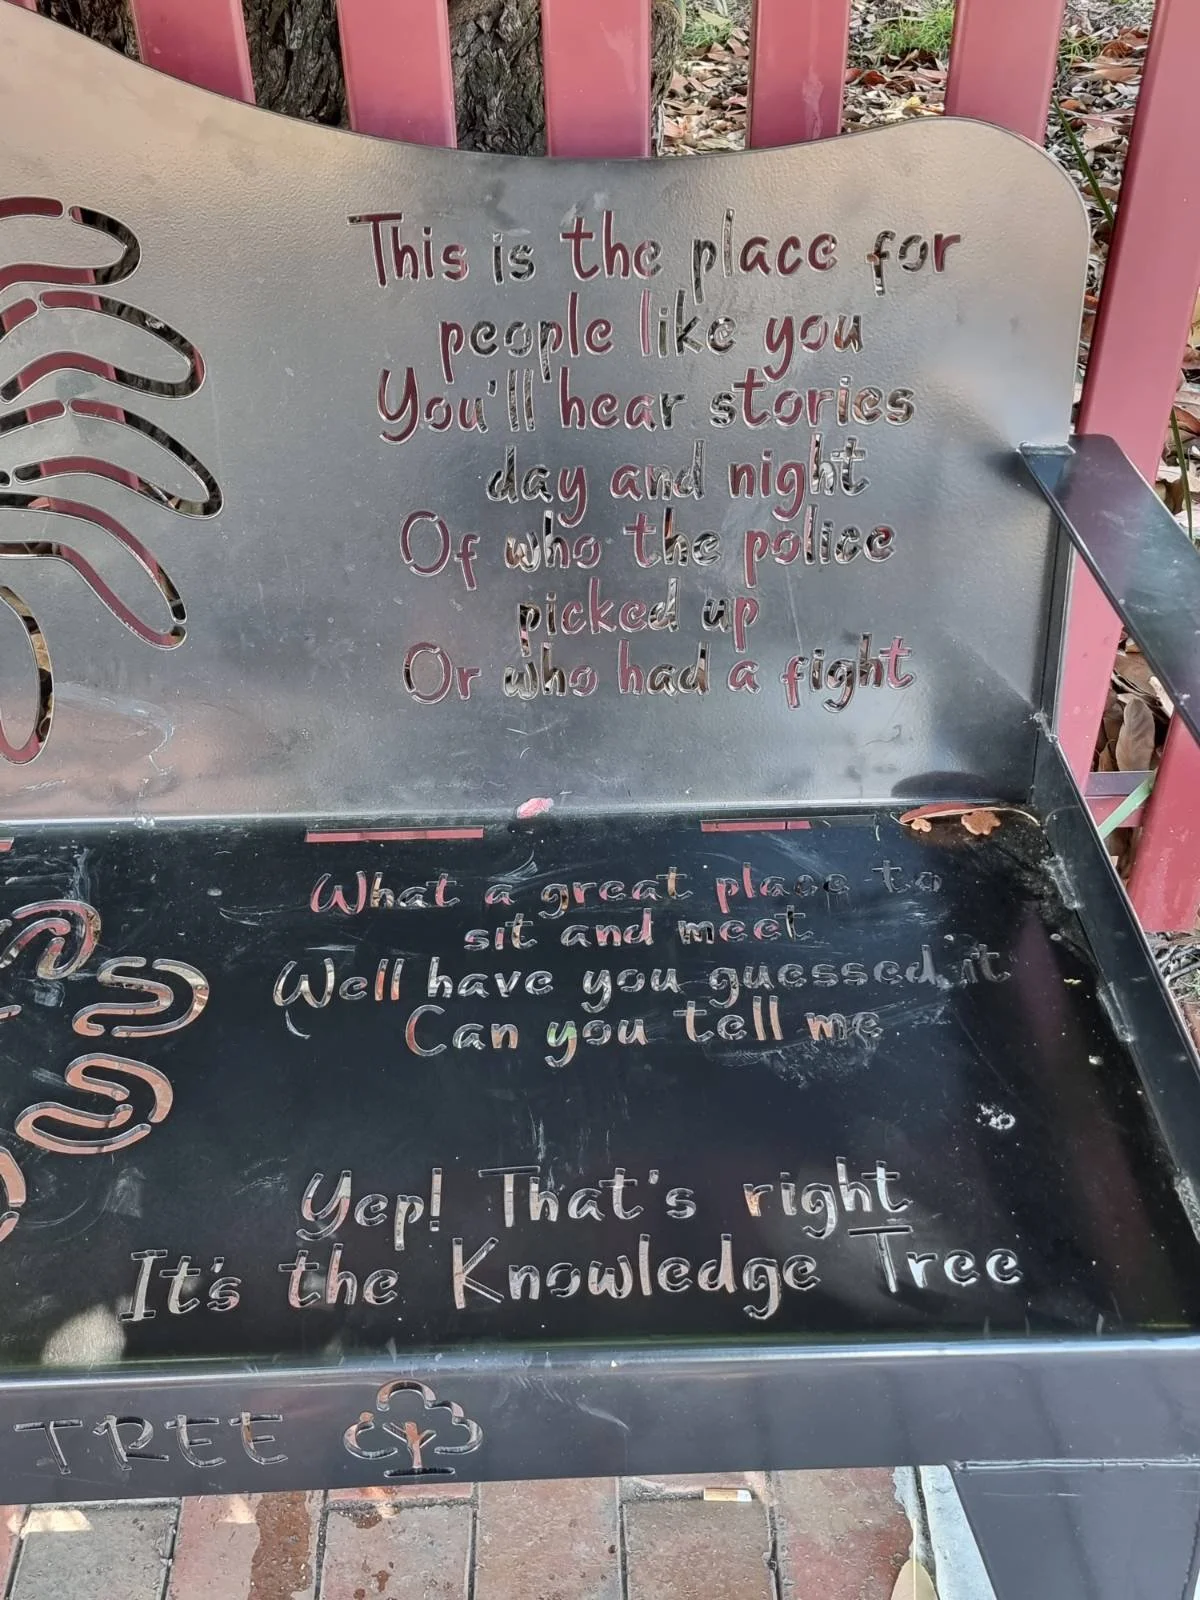 This is the place for
people like you
You'll hear stories
day and night
Of who the police
picked up
Or who had a fight
What a great place to
sit and meet
Well have you guessed it
Can you tell me
Yep! That's right
It's the Knowledge Tree
TREE